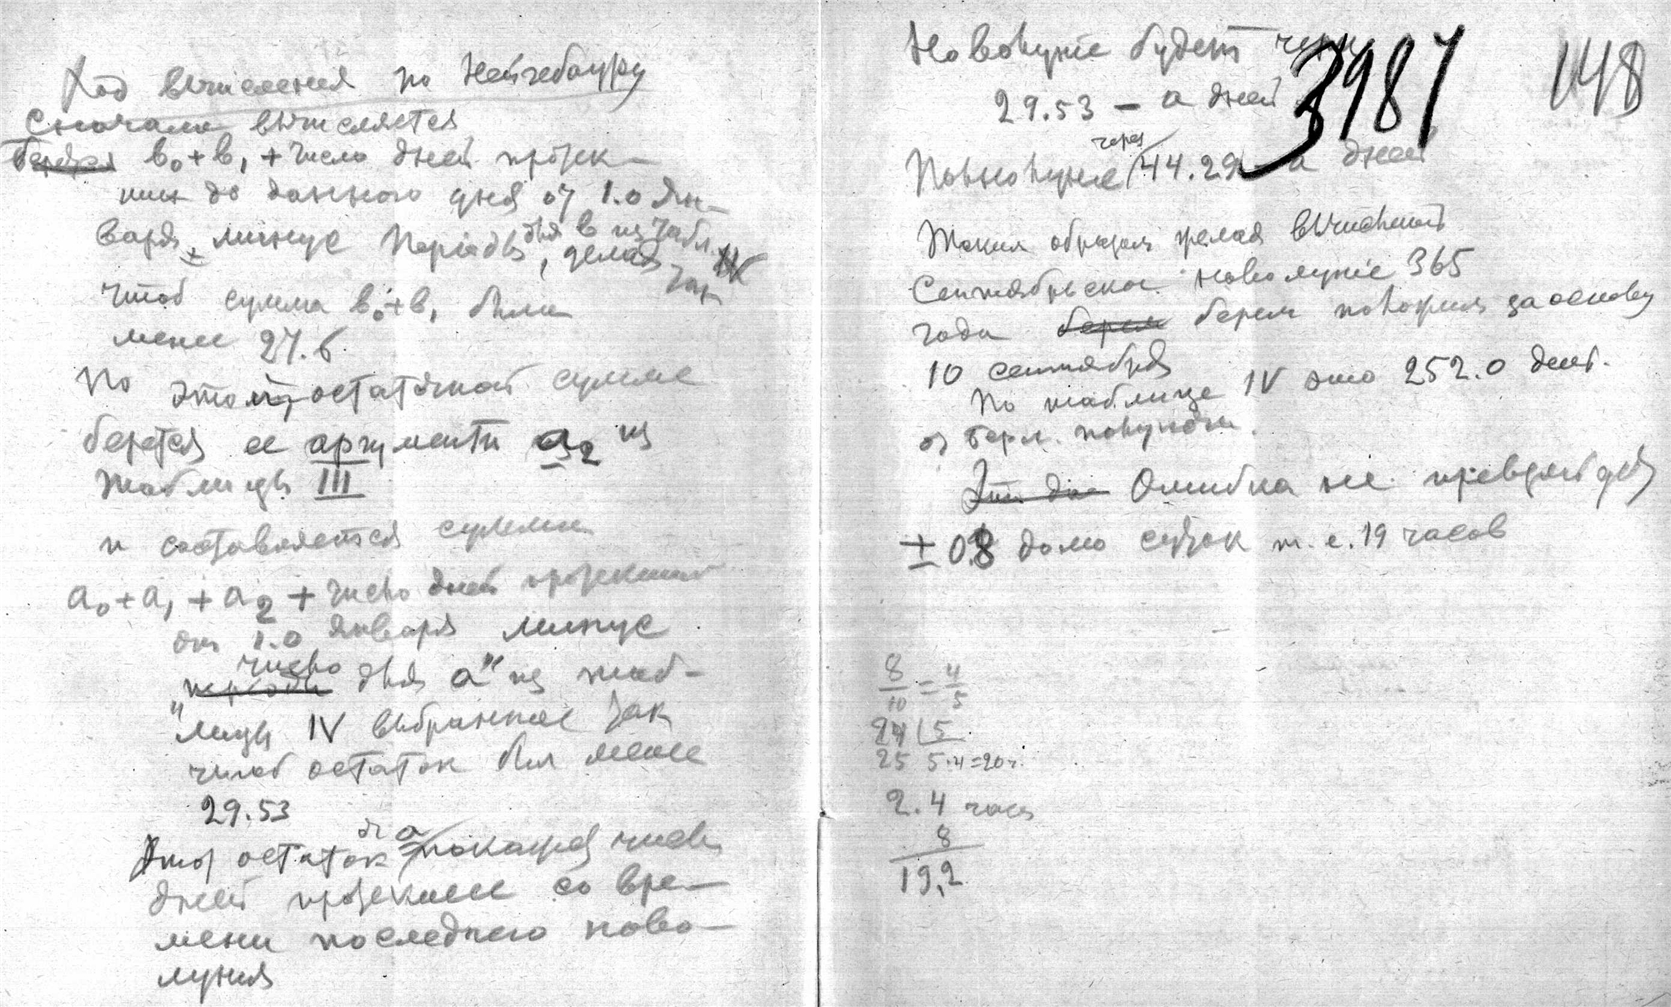 Ход вычисления по Нейгебауру
Сначала вычисляется
берется b₀+b₁ + число дней протек-
ших до данного дня от 1.0 Ян-
варя ± минус Периоды для b из табл. IV
, делая так
чтоб сумма b₀+b₁ была
менее 27.6
По этой остаточной сумме
берется ее аргумент a₂ из
таблицы III
и составляется сумма
a₀+a₁+a₂+ число дней протекших
от 1.0 Января минус
число
периоды для "a" из таб-
"лицы IV выбранное так
чтоб остаток был менее
29.53
Этот остаток от a покажет число
дней протекшее со вре-
мени последнего ново-
луния
Новолуние будет через
29.53 — a дней
3981
148
Полнолуние через 44.29 — a дней
Таким образом желая вычислить
Сентябрьское новолуние 365
года берем берем положим за основу
10 сентября
По таблице IV это 252.0 дней.
от Берл. полуночи.
Это до Ошибка не превзойдет
± 0.8 долю суток т.е. 19 часов
8/10 = 4/5
24 | 5
25 5·4=20ч.
2.4 часа
8
19,2